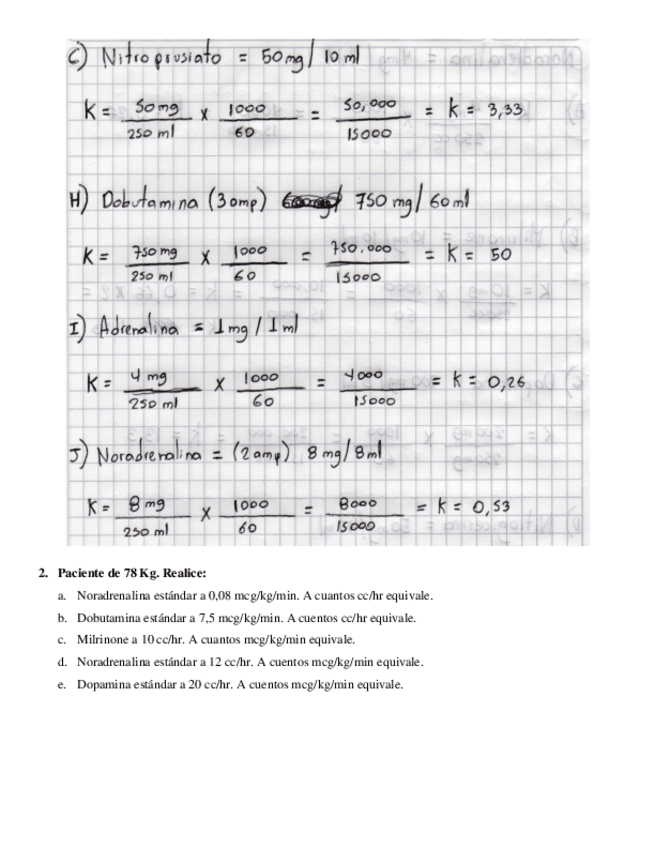 C) Nitroprusiato = 50 mg / 10 ml
K = 50 mg / 250 ml x 1000 / 60 = 50,000 / 15000 = k = 3,33
H) Dobutamina (3 amp) 750 mg / 60 ml
K = 750 mg / 250 ml x 1000 / 60 = 750.000 / 15000 = k = 50
I) Adrenalina = 1 mg / 1 ml
K = 4 mg / 250 ml x 1000 / 60 = 4000 / 15000 = k = 0,26
J) Noradrenalina = (2 amp) 8 mg / 8 ml
K = 8 mg / 250 ml x 1000 / 60 = 8000 / 15000 = k = 0,53
2. Paciente de 78 Kg. Realice:
a. Noradrenalina estándar a 0,08 mcg/kg/min. A cuantos cc/hr equivale.
b. Dobutamina estándar a 7,5 mcg/kg/min. A cuentos cc/hr equivale.
c. Milrinone a 10 cc/hr. A cuantos mcg/kg/min equivale.
d. Noradrenalina estándar a 12 cc/hr. A cuentos mcg/kg/min equivale.
e. Dopamina estándar a 20 cc/hr. A cuentos mcg/kg/min equivale.